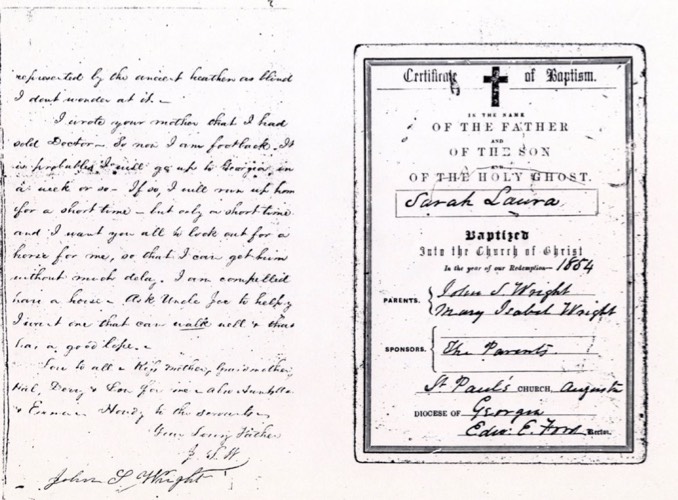 represented by the ancient heathen as blind
I dont wonder at it.—
I wrote your mother that I had
sold Doctor— So now I am footback. It
is probable I will go up to Georgia in
a week or so— If so, I will run up home
for a short time— but only a short time
and I want you all to look out for a
horse for me, so that I can get him
without much delay. I am compelled
have a horse— Ask Uncle Joe to help
I want one that can walk well & that
has a good lope.—
Love to all & Kiss mother, Grandmother
& for me— Also
& Howdy to the servants
Your Loving Father
J. S. W
John S Wright
Certificate of Baptism.
IN THE NAME
OF THE FATHER
AND
OF THE SON
AND
OF THE HOLY GHOST.
Sarah Laura
Baptized
Into the Church of Christ
In the year of our Redemption— 1854
PARENTS. John S Wright
Mary Isabel Wright
SPONSORS. The Parents
St Paul's CHURCH, Augusta
DIOCESE OF Georgia
Edw: E. Ford Rector.